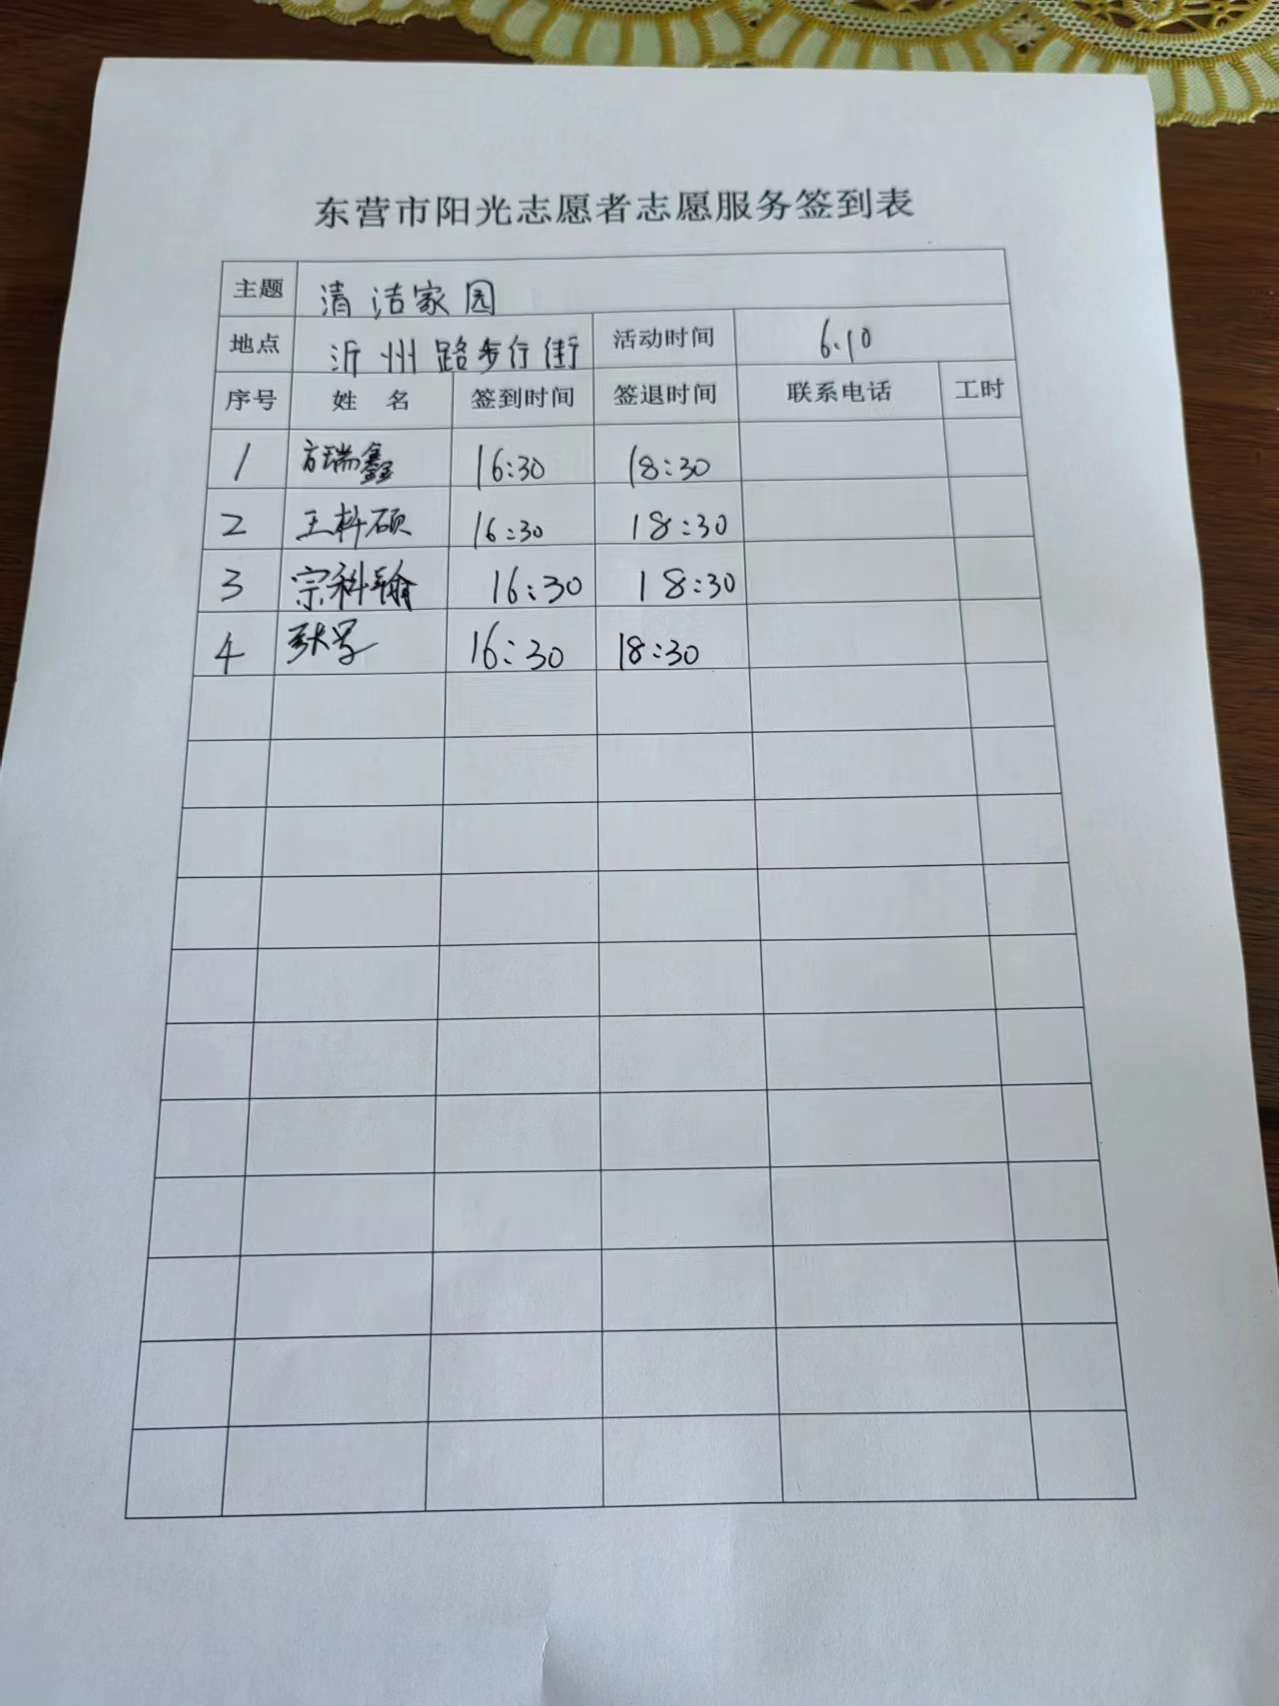 东营市阳光志愿者志愿服务签到表
主题 清洁家园
地点 沂州路步行街 活动时间 6.10
序号 姓 名 签到时间 签退时间 联系电话 工时
1 方瑞鑫 16:30 18:30
2 王科硕 16:30 18:30
3 宗科翰 16:30 18:30
4 张 16:30 18:30